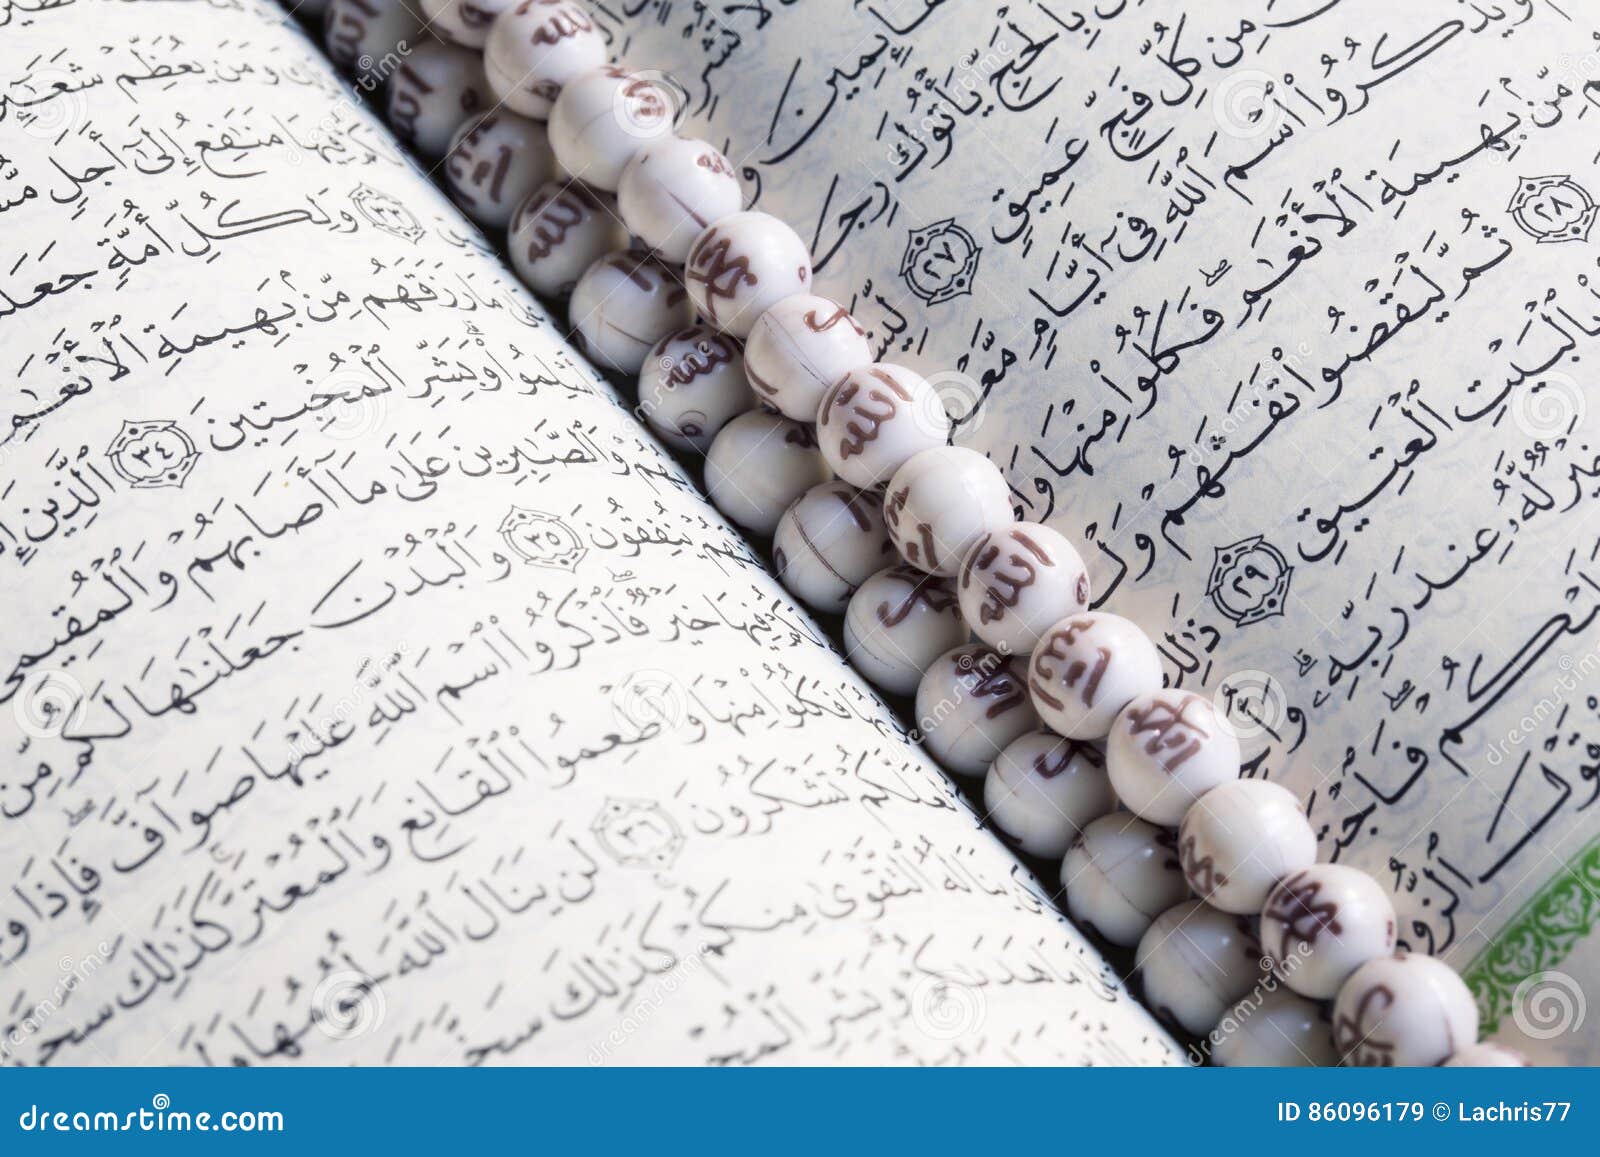 وَلَا تُشْرِ
قَآئِمِينَ وَ
بِٱلْحَجِّ يَأْتُوكَ رِجَا
مِن كُلِّ فَجٍّ عَمِيقٍ ٢٧ لِّيَشْ
وَيَذْكُرُوا۟ ٱسْمَ ٱللَّهِ فِىٓ أَيَّامٍ مَّعْ
مِّنۢ بَهِيمَةِ ٱلْأَنْعَٰمِ فَكُلُوا۟ مِنْهَا وَأَ
٢٨ ثُمَّ لْيَقْضُوا۟ تَفَثَهُمْ وَلْ
بِٱلْبَيْتِ ٱلْعَتِيقِ ٢٩ ذَٰلِكَ
خَيْرٌ لَّهُۥ عِندَ رَبِّهِۦ وَأُحِ
عَلَيْكُمْ فَٱجْتَ
قَوْلَ ٱلزُّورِ
وَمَن يُعَظِّمْ شَعَٰٓئِرَ
فِيهَا مَنَٰفِعُ إِلَىٰٓ أَجَلٍ مُّسَ
٣٣ وَلِكُلِّ أُمَّةٍ جَعَلْنَا
عَلَىٰ مَا رَزَقَهُم مِّنۢ بَهِيمَةِ ٱلْأَنْعَٰمِ
أَسْلِمُوا۟ وَبَشِّرِ ٱلْمُخْبِتِينَ ٣٤ ٱلَّذِينَ إِذَ
وَٱلصَّٰبِرِينَ عَلَىٰ مَآ أَصَابَهُمْ وَٱلْمُقِيمِى
يُنفِقُونَ ٣٥ وَٱلْبُدْنَ جَعَلْنَٰهَا لَكُم مِّن
فِيهَا خَيْرٌ فَٱذْكُرُوا۟ ٱسْمَ ٱللَّهِ عَلَيْهَا صَوَآفَّ فَإِذَا وَ
فَكُلُوا۟ مِنْهَا وَأَطْعِمُوا۟ ٱلْقَانِعَ وَٱلْمُعْتَرَّ كَذَٰلِكَ سَخَّرْ
لَعَلَّكُمْ تَشْكُرُونَ ٣٦ لَن يَنَالَ ٱللَّهَ لُحُومُهَا وَلَا
يَنَالُهُ ٱلتَّقْوَىٰ مِنكُمْ كَذَٰلِكَ سَخَّرَ
مَا هَدَىٰكُمْ وَبَشِّرِ ٱلْمُحْ
الله
dreamstime.com
ID 86096179 © Lachris77